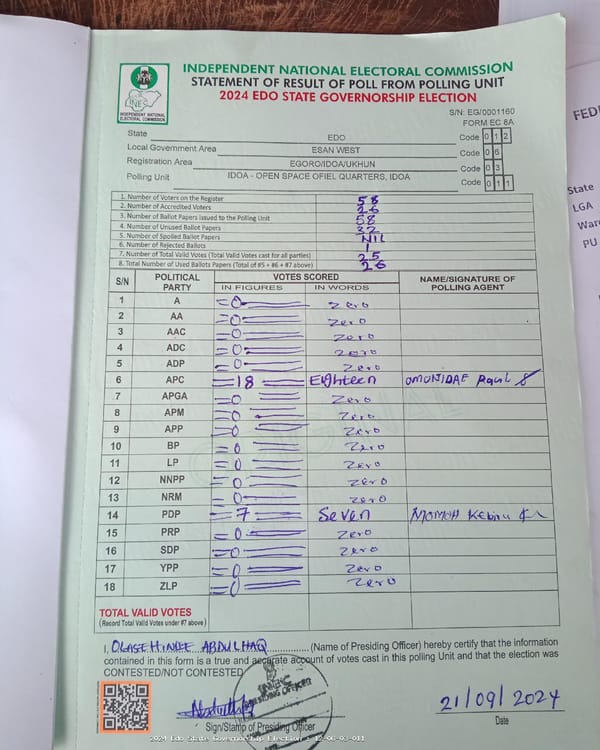 INDEPENDENT NATIONAL ELECTORAL COMMISSION
STATEMENT OF RESULT OF POLL FROM POLLING UNIT
2024 EDO STATE GOVERNORSHIP ELECTION
INEC
INDEPENDENT NATIONAL
ELECTORAL COMMISSION
S/N: EG/0001160
FORM EC 8A
State EDO Code 0 1 2
Local Government Area ESAN WEST Code 0 6
Registration Area EGORO/IDOA/UKHUN Code 0 3
Polling Unit IDOA - OPEN SPACE OFIEL QUARTERS, IDOA Code 0 1 1
1. Number of Voters on the Register 58
2. Number of Accredited Voters 26
3. Number of Ballot Papers Issued to the Polling Unit 58
4. Number of Unused Ballot Papers 32
5. Number of Spoiled Ballot Papers NIL
6. Number of Rejected Ballots 1
7. Number of Total Valid Votes (Total Valid Votes cast for all parties) 25
8. Total Number of Used Ballots Papers (Total of #5 + #6 + #7 above) 26
S/N POLITICAL PARTY VOTES SCORED NAME/SIGNATURE OF POLLING AGENT
IN FIGURES IN WORDS
1 A 0 Zero
2 AA 0 Zero
3 AAC 0 Zero
4 ADC 0 Zero
5 ADP 0 Zero
6 APC 18 Eighteen OMONIDAE Paul
7 APGA 0 Zero
8 APM 0 Zero
9 APP 0 Zero
10 BP 0 Zero
11 LP 0 Zero
12 NNPP 0 Zero
13 NRM 0 Zero
14 PDP 7 Seven MOMOH
15 PRP 0 Zero
16 SDP 0 Zero
17 YPP 0 Zero
18 ZLP 0 Zero
TOTAL VALID VOTES
(Record Total Valid Votes under #7 above)
I, OLASEHINDE ABDULHAQ (Name of Presiding Officer) hereby certify that the information
contained in this form is a true and accurate account of votes cast in this polling Unit and that the election was
CONTESTED/NOT CONTESTED
21/09/2024
Sign/Stamp of Presiding Officer Date
FEDE
State
LGA
Ward
PU